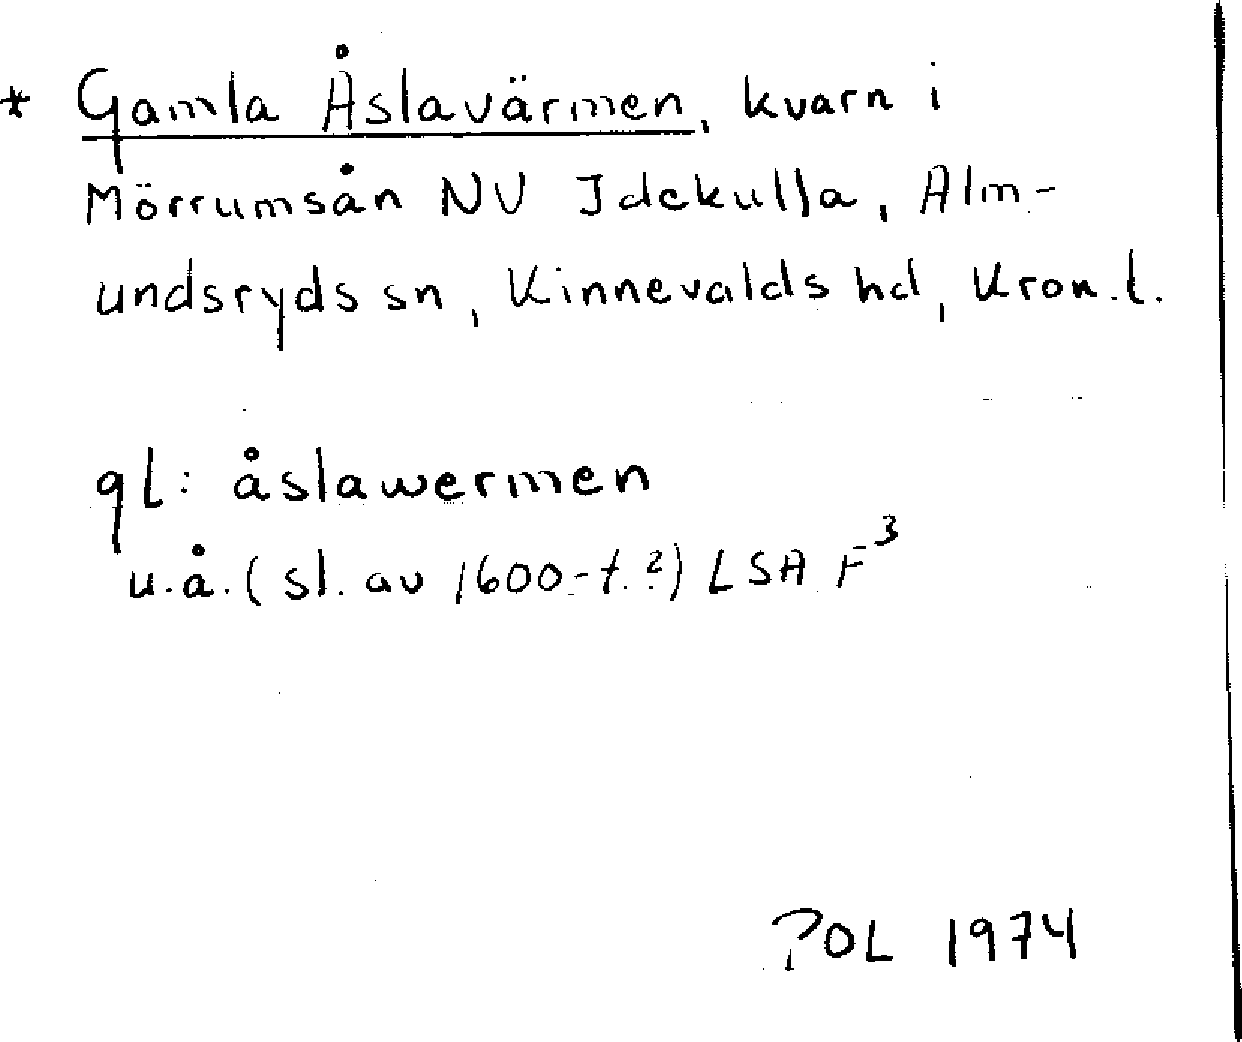 * Gamla Åslavärmen, kvarn i
Mörrumsån NV Idekulla, Alm-
undsryds sn, Kinnevalds hd, Kron. l.
gl: åslawermen
u.å. (sl. av 1600-t.?) LSA F³
POL 1974